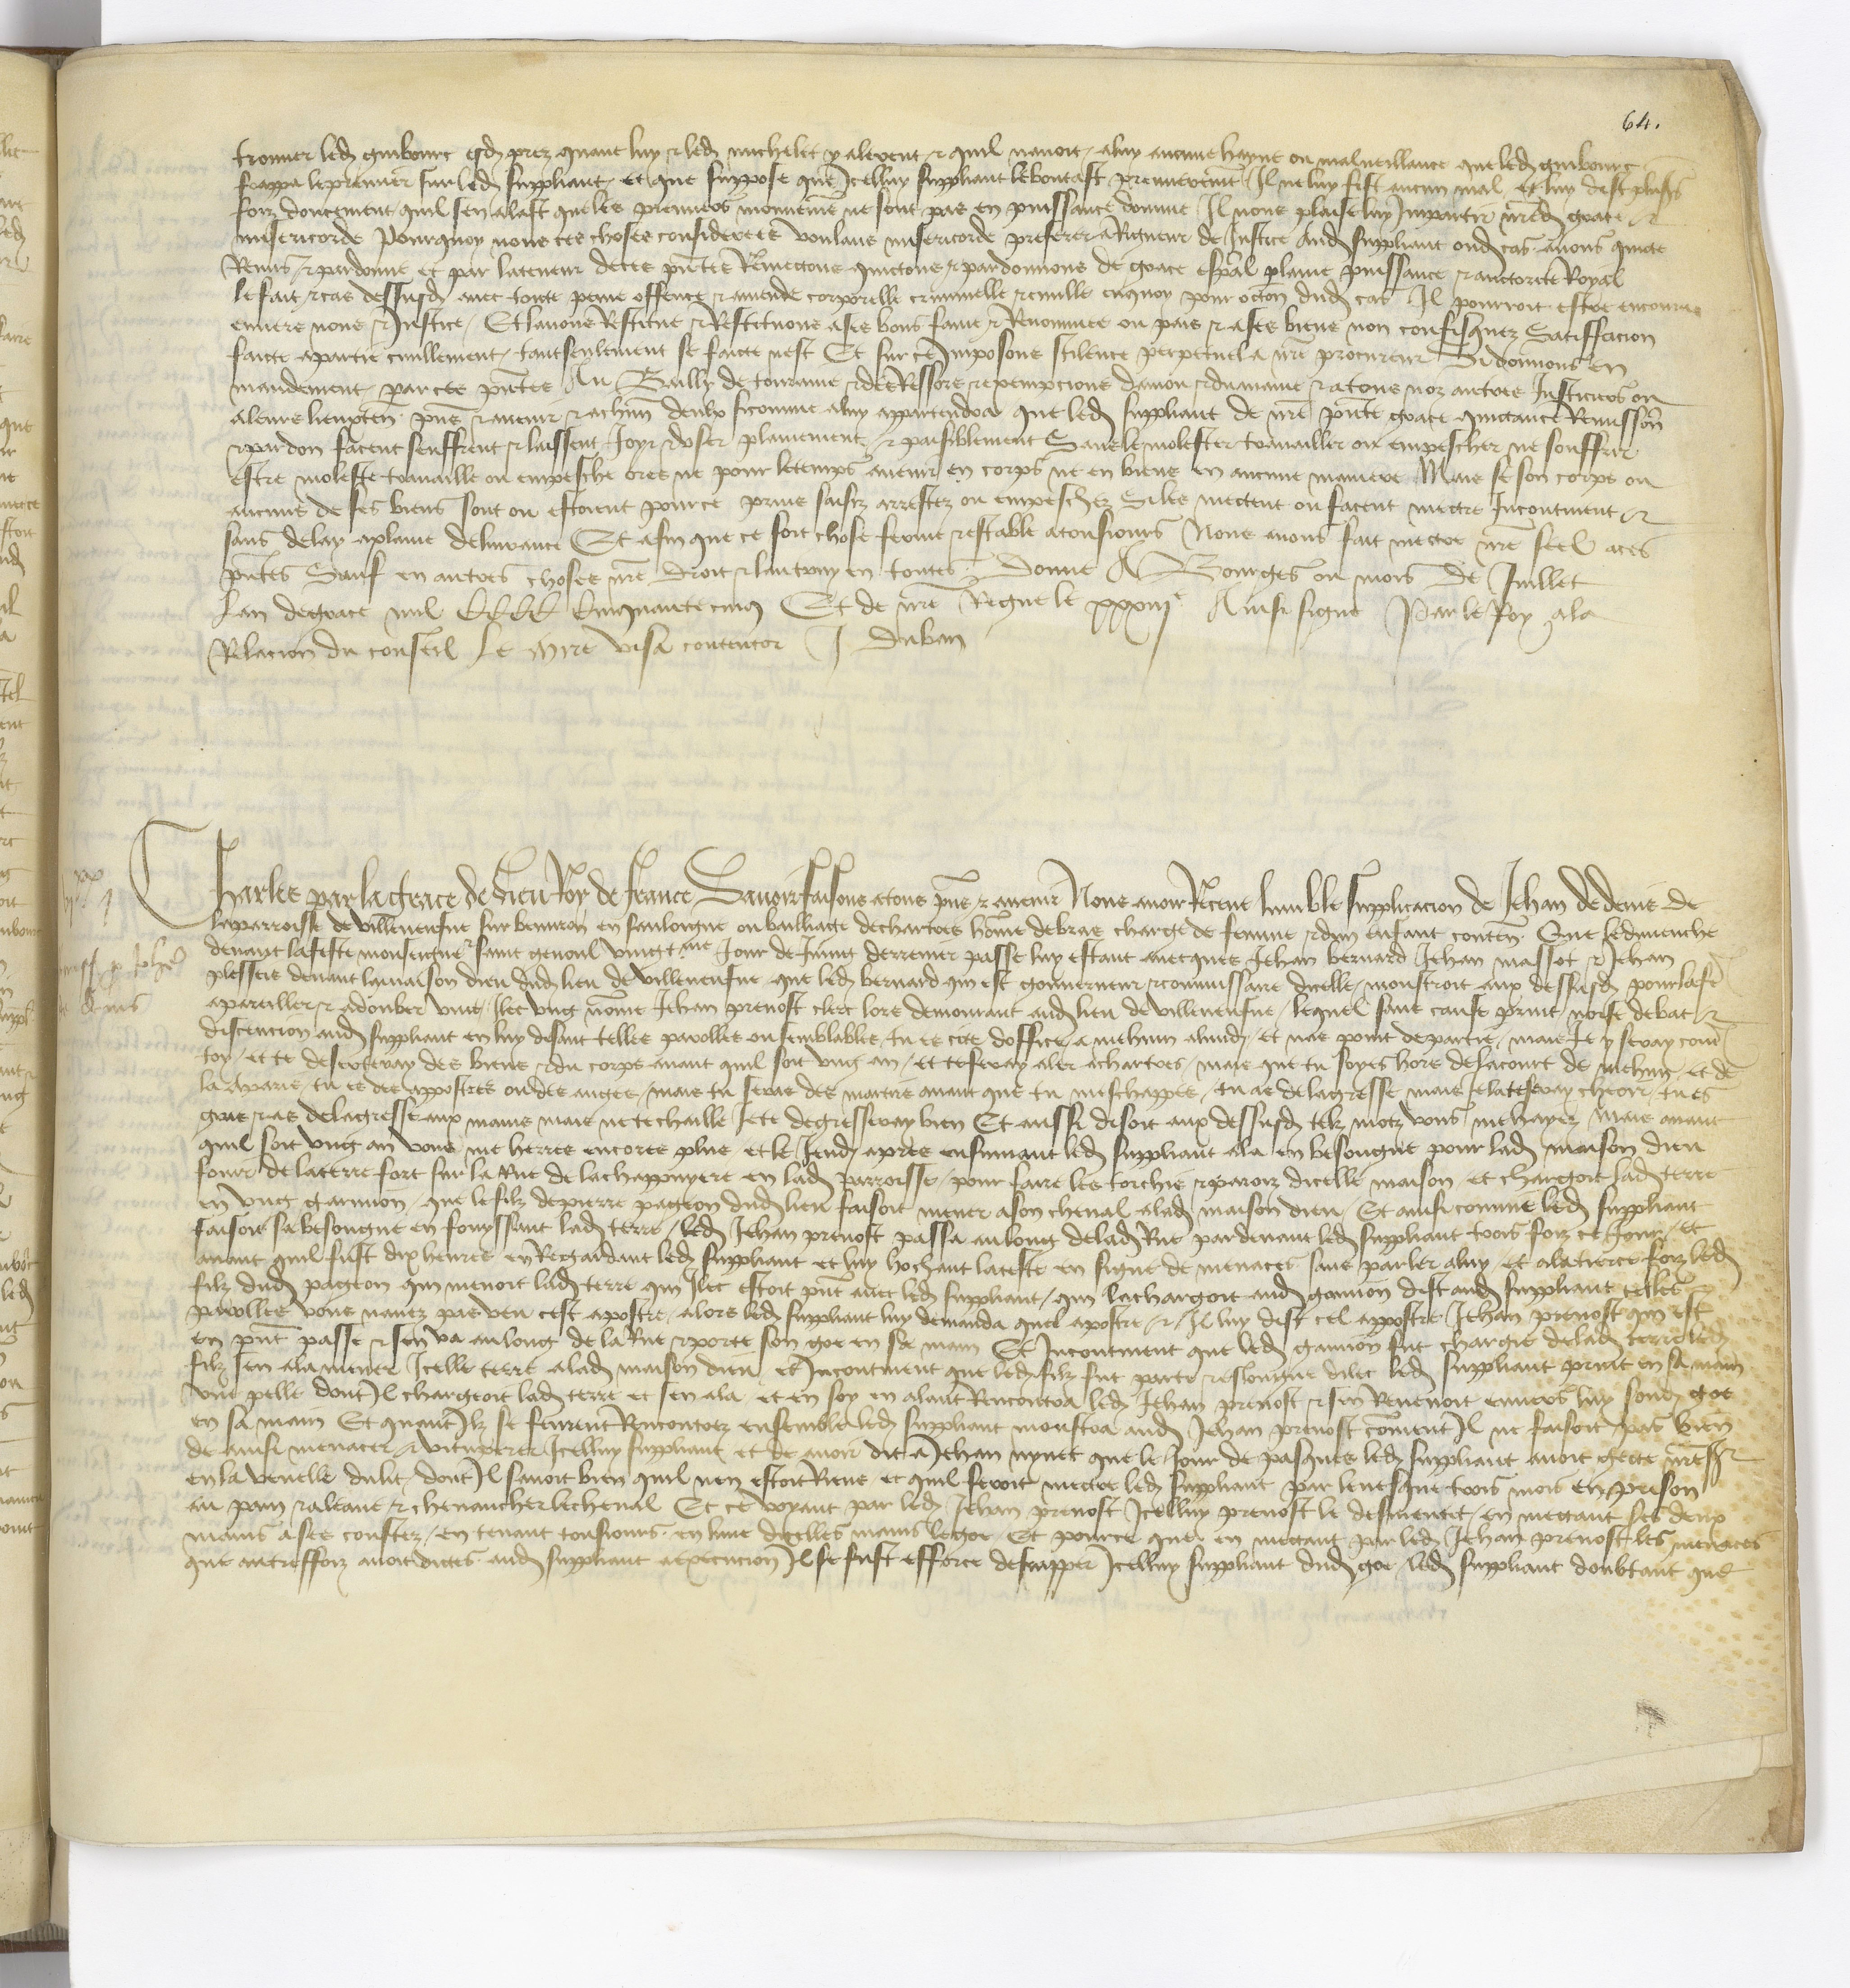 64.
trouver led guibourc esd prez quant luy & led michelet y alerent & quil navoit a luy aucune hayne ou malveillance que led guibourc
frappa le premier sur led suppliant et que suppose que Icelluy suppliant le boutast premierement Il ne luy fist aucun mal et luy dist plusrs
foiz doucement quil sen alast que les premiers mouvemens ne sont pas en puissance domme Il nous plaise luy Impartir nred grace &
misericorde Pourquoy nous ces choses considerees voulans misericorde preferer a Rigueur de Justice Aud suppliant oud cas avons quicte
Remis & pardonne et par la teneur de ces pntes Remectons quictons & pardonnons de grace espal plaine puissance & auctorite Royal
le fait & cas dessusd avec toute peine offence & amende corporelle criminelle & civille enquoy pour occon dud cas Il pourroit estre encouru
envers nous & Justice Et lavons Restitue & Restituons a ses bons fame & Renommee ou pais & a ses biens non confisquez Satisfacion
faicte a partie civillement tantseulement se faicte nest Et sur ce Imposons scilence perpetuel a nre procureur Si donnons en
mandement par ces pntes Au Bailly de touraine & des Ressors & exempcions danjou & du maine & a tous noz autres Justiciers ou
a leurs lieuxten pns & avenir & a chun deulx si comme a luy appartendra que led suppliant de nre pnte grace quictance Remission
& pardon facent seuffrent & laissent Joyr & user plainement & paisiblement Sans le molester travailler ou empescher ne souffrir
estre moleste travaille ou empesche ores ne pour le temps avenir en corps ne en biens en aucune maniere Mais se son corps ou
aucuns de ses biens sont ou estoient pour ce prins saisiz arrestez ou empeschez Si les mectent ou facent mectre Incontinent &
sans delay a plaine delivrance Et afin que ce soit chose ferme & estable a tousjours Nous avons fait mectre nre seel a ces
pntes Sauf en autres choses nre droit & lautruy en toutes Donne A Bourges ou mois de Juillet
Lan de grace mil CCCC Cinquante cinq Et de nre Regne le xxxiije Ainsi signe Par le Roy a la
Relacion du conseil Le mire visa contentor J duban
Charles par la grace de dieu Roy de france Savoir faisons a tous pns & avenir Nous avoir Receue lumble supplicacion de Jehan de denis de
la parroisse de villeneufve sur bevron en saulongne ou bailliage de chartres homme de bras charge de femme & dun enfant conten Que le dimenche
devant la feste monseigneur saint genoul vingtme Jour de Juing derrenier passe luy estant avecques Jehan bernard Jehan massot & Jehan
plesseis devant la maison dieu dud lieu de villeneufve que led bernard qui est gouverneur & commissaire dicelle monstroit aux dessusd pour la fe
apareiller & adouber vint Ilec ung nomme Jehan prevost clerc lors demourant aud lieu de villeneufve lequel sans cause print noise debat &
discencion aud suppliant en luy disant telles parolles ou semblables tu es cite doffice a mehun a lundi et nas point de partie mais Je y seray contre
toy et te descireray des biens & du corps avant quil soit ung an et te feray aler a chartres mais que tu soyes hors de la court de mehun et de
tu es des appostres ou des anges mais tu seras des martirs avant que tu meschappes tu as de la gresse mais Je la te feray cheoir tu es
gras & as de la gresse aux mains mais ne te chaille Je te degresseray bien Et aussi disoit aux dessusd telz motz vous me hayez mais avant
quil soit ung an vous me herres encores plus et le Jeudi apres ensuivant led suppliant ala en besongne pour lad maison dieu
fouir de la terre fort sur la Rue de la chappuyere en lad parroisse pour faire les torchis & paroiz dicelle maison et chargoit lad terre
en ung gannion que le filz de pierre pageon dud lieu faisoit mener a son cheval a lad maison dieu Et ainsi comme led suppliant
faisoit sa besongne en fouyssant lad terre led Jehan prevost passa au long de lad Rue par devant led suppliant trois foiz ce Jour et
avant quil fust dix heures en Regardant led suppliant et luy hochant la teste en signe de menaces sans parler a luy et a la tierce foiz led
filz dud pageon qui menoit lad terre qui Ilec estoit pnt avec led suppliant qui la chargoit aud gannion dist aud suppliant telles
parolles vous navez pas veu cest apostre alors led suppliant luy demanda quel apostre & Il luy dist cel appostre Jehan prevost qui est
en pnt passe & sen va au long de la Rue & porte son goe en sa main Et Incontinent que led gannion fut chargie de lad terre led
filz sen ala mener Icelle terre a lad maison dieu et Incontinent que led filz fut party & eslongne dilec led suppliant print en sa main
une pelle dont Il chargeoit lad terre et sen ala et en soy en alant Rencontra led Jehan prevost & sen Revenoit envers luy sond goe
en sa main Et quant Ilz se feurent Rencontrez ensemble led suppliant monstra aud Jehan prevost coment Il ne faisoit pas bien
de ainsi menacer & vituperer Icelluy suppliant et de avoir dit a Jehan nynet que le Jour de pasques led suppliant avoit gecte nre sr
en la venelle du lit dont Il savoit bien quil nen estoit Riens et quil feroit mectre led suppliant par levesque trois mois en prison
au pain & a leaue & chevaucher le cheval Et ce voyant par led Jehan prevost Icelluy prevost le desmentit en mectant ses deux
mains a ses coustez en tenant tousjours en lune dicelles mains le goe Et pour ce que en mectant par led Jehan prevost les menaces
que autreffoiz avoit dictes aud suppliant a execucion Il se fust efforce de frapper Icelluy suppliant dud goe led suppliant doubtant que